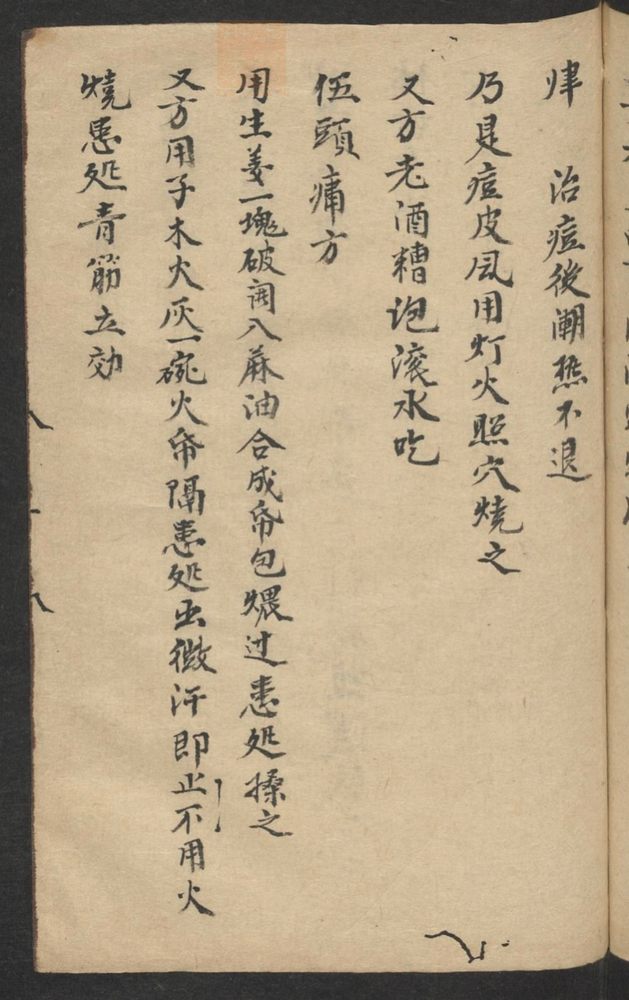 肆 治痘後潮热不退
乃是痘皮風用灯火照穴燒之
又方老酒糟泡滚水吃
伍頭痛方
用生姜一塊破開入蔴油合成帋包煨过患処擦之
又方用子木火灰一碗火帋隔患処出微汗即止不用火
燒患処青筋立効